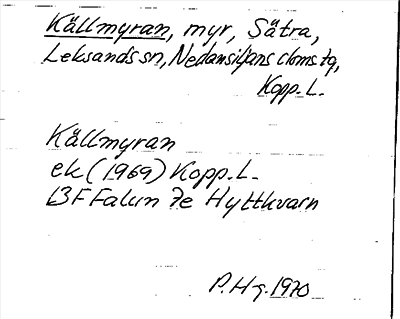 Källmyran, myr, Sätra,
Leksands sn, Nedansiljans doms. tg,
Kopp. L.
Källmyran
ek (1969) Kopp. L.
13F Falun 7e Hyttkvarn
P. Hg. 1970